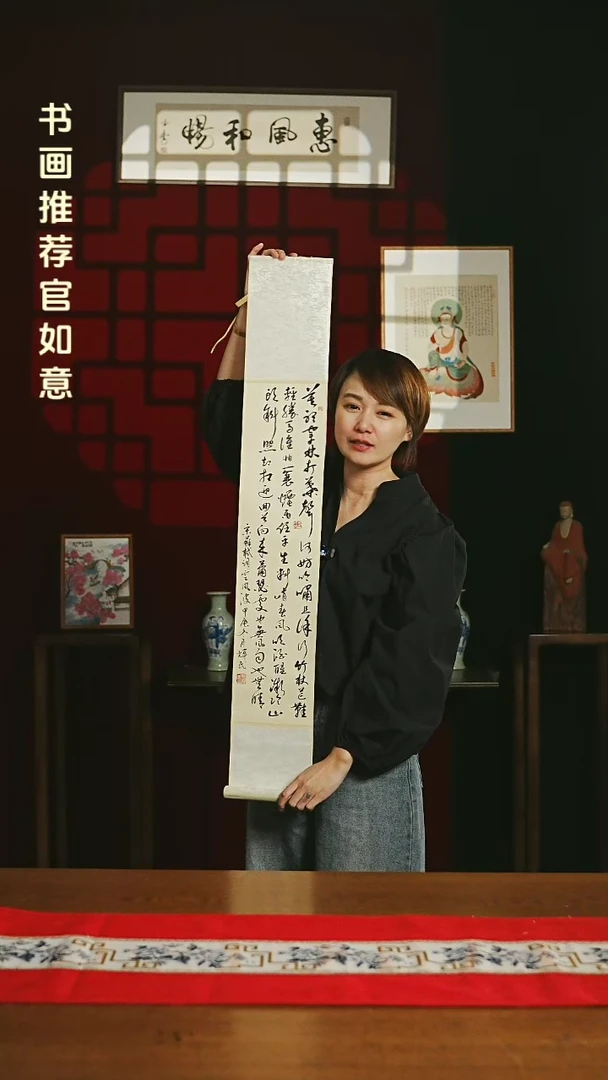 书画推荐官如意
惠風和暢
莫聽穿林打葉聲何妨吟嘯且徐行竹杖芒鞋
輕勝馬誰怕一蓑煙雨任平生料峭春風吹酒醒微冷山
頭斜照却相迎回首向来蕭瑟處也無風雨也無晴
宋蘇軾詞定風波